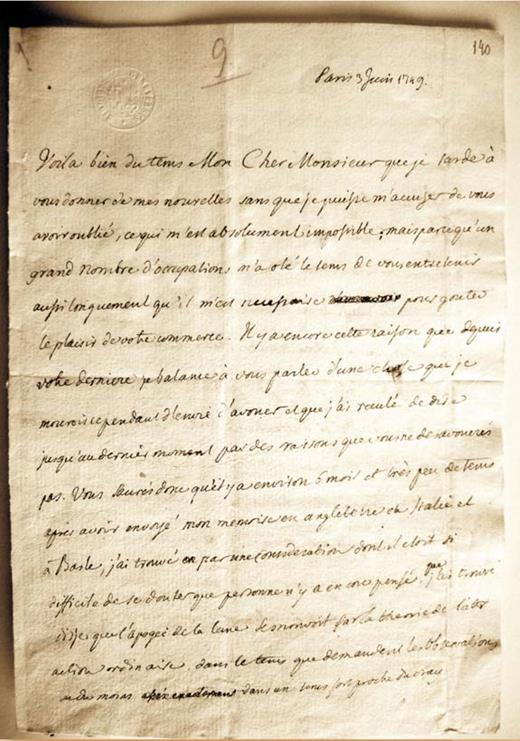 9
140
Paris 3 Juin 1749.
Voila bien du tems Mon Cher Monsieur que je tarde à
vous donner de mes nouvelles sans que je puisse m'accuser de vous
avoir oublié, ce qui m'est absolument impossible; mais parce qu'un
grand nombre d'occupations m'a oté le tems de vous entretenir
aussi longuement qu'il m'est necessaire pour gouter
le plaisir de votre commerce. Il y a encore cette raison que depuis
votre derniere je balance à vous parler d'une chose que je
mourois cependant d'envie d'avouer et que j'ai reculé de dire
jusqu'au dernier moment par des raisons que vous ne desavouerés
pas. Vous saurés donc qu'il y a environ 6 mois et très peu de tems
après avoir envoyé mon memoire en angleterre en Italie et
à Basle, j'ai trouvé par une consideration dont il etoit si
difficile de se douter que personne n'y a encore pensé, que j'ai trouvé
dis je que l'apogée de la lune se mouvoit par la theorie de l'attr
action ordinaire, dans le tems que demandent les observations
ou du moins dans un tems fort proche du vray